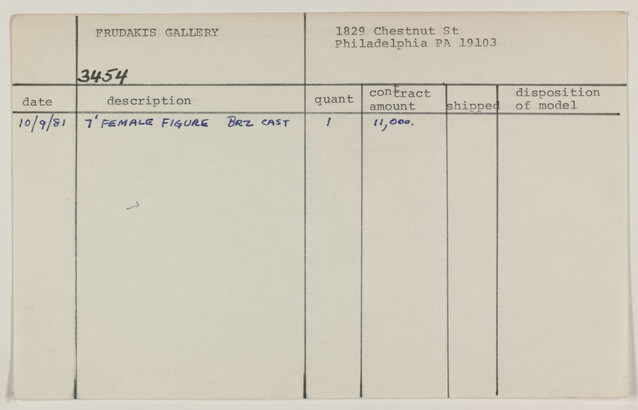 FRUDAKIS GALLERY
1829 Chestnut St
Philadelphia PA 19103
3454
date description quant contract amount shipped disposition of model
10/9/81 7' FEMALE FIGURE BRZ CAST 1 11,000.